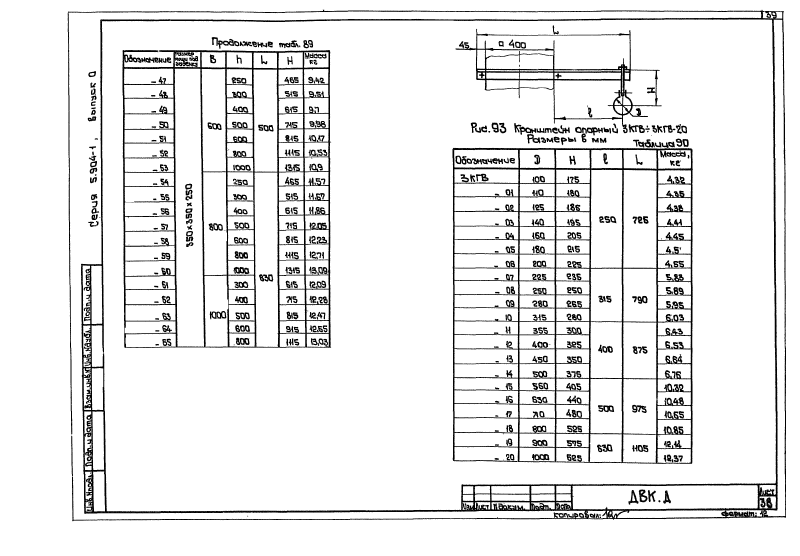 139
Серия 5.904-1, выпуск 0
Продолжение табл. 89
Обозначение B h L H Масса кг
350х350х250
- 47 600 250 500 465 9,42
- 48 300 515 9,51
- 49 400 615 9,7
- 50 500 715 9,98
- 51 600 815 10,17
- 52 800 1115 10,53
- 53 1000 1315 10,9
- 54 800 250 630 465 11,57
- 55 300 515 11,67
- 56 400 615 11,86
- 57 500 715 12,05
- 58 600 815 12,23
- 59 800 1115 12,71
- 60 1000 1315 13,09
- 61 1000 300 615 12,09
- 62 400 715 12,28
- 63 500 815 12,47
- 64 600 915 12,65
- 65 800 1115 13,03
L
45
□ 400
H
ℓ
D
Рис. 93 Кронштейн опорный 3КГВ÷3КГВ-20
Размеры в мм
Таблица 90
Обозначение D H ℓ L Масса, кг
3КГВ 100 175 250 725 4,32
- 01 110 180 4,35
- 02 125 185 4,38
- 03 140 195 4,41
- 04 160 205 4,45
- 05 180 215 4,5
- 06 200 225 4,55
- 07 225 235 315 790 5,83
- 08 250 250 5,89
- 09 280 265 5,95
- 10 315 280 6,03
- 11 355 300 400 875 6,43
- 12 400 325 6,53
- 13 450 350 6,64
- 14 500 375 6,76
- 15 560 405 500 975 10,32
- 16 630 440 10,48
- 17 710 480 10,65
- 18 800 525 10,85
- 19 900 575 630 1105 12,11
- 20 1000 625 12,37
Инв.№подл. Подп. и дата Взам.инв.№ Инв.№дубл. Подп. и дата
Изм Лист № докум. Подп. Дата
ДВК.Д
Лист
38
копировал:
формат: 12